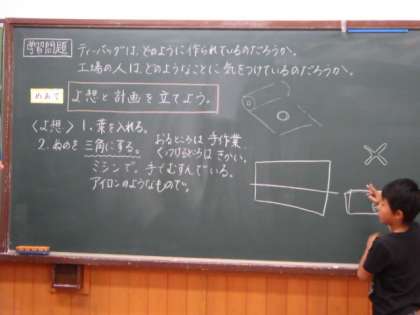 学習問題
ティーバッグは、どのように作られているのだろうか。
工場の人は、どのようなことに気をつけているのだろうか。
めあて
よ想と計画を立てよう。
〈よ想〉1、葉を入れる。
2、ぬのを三角にする。
おるところは手作業
くっつけるところはきかい。
ミシンで。手でむすんでいる。
アイロンのようなもので。